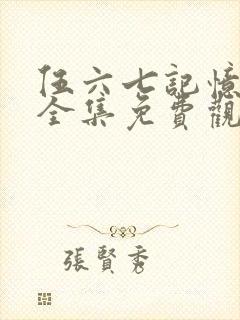 伍六七記憶
全集免費觀
張賢秀